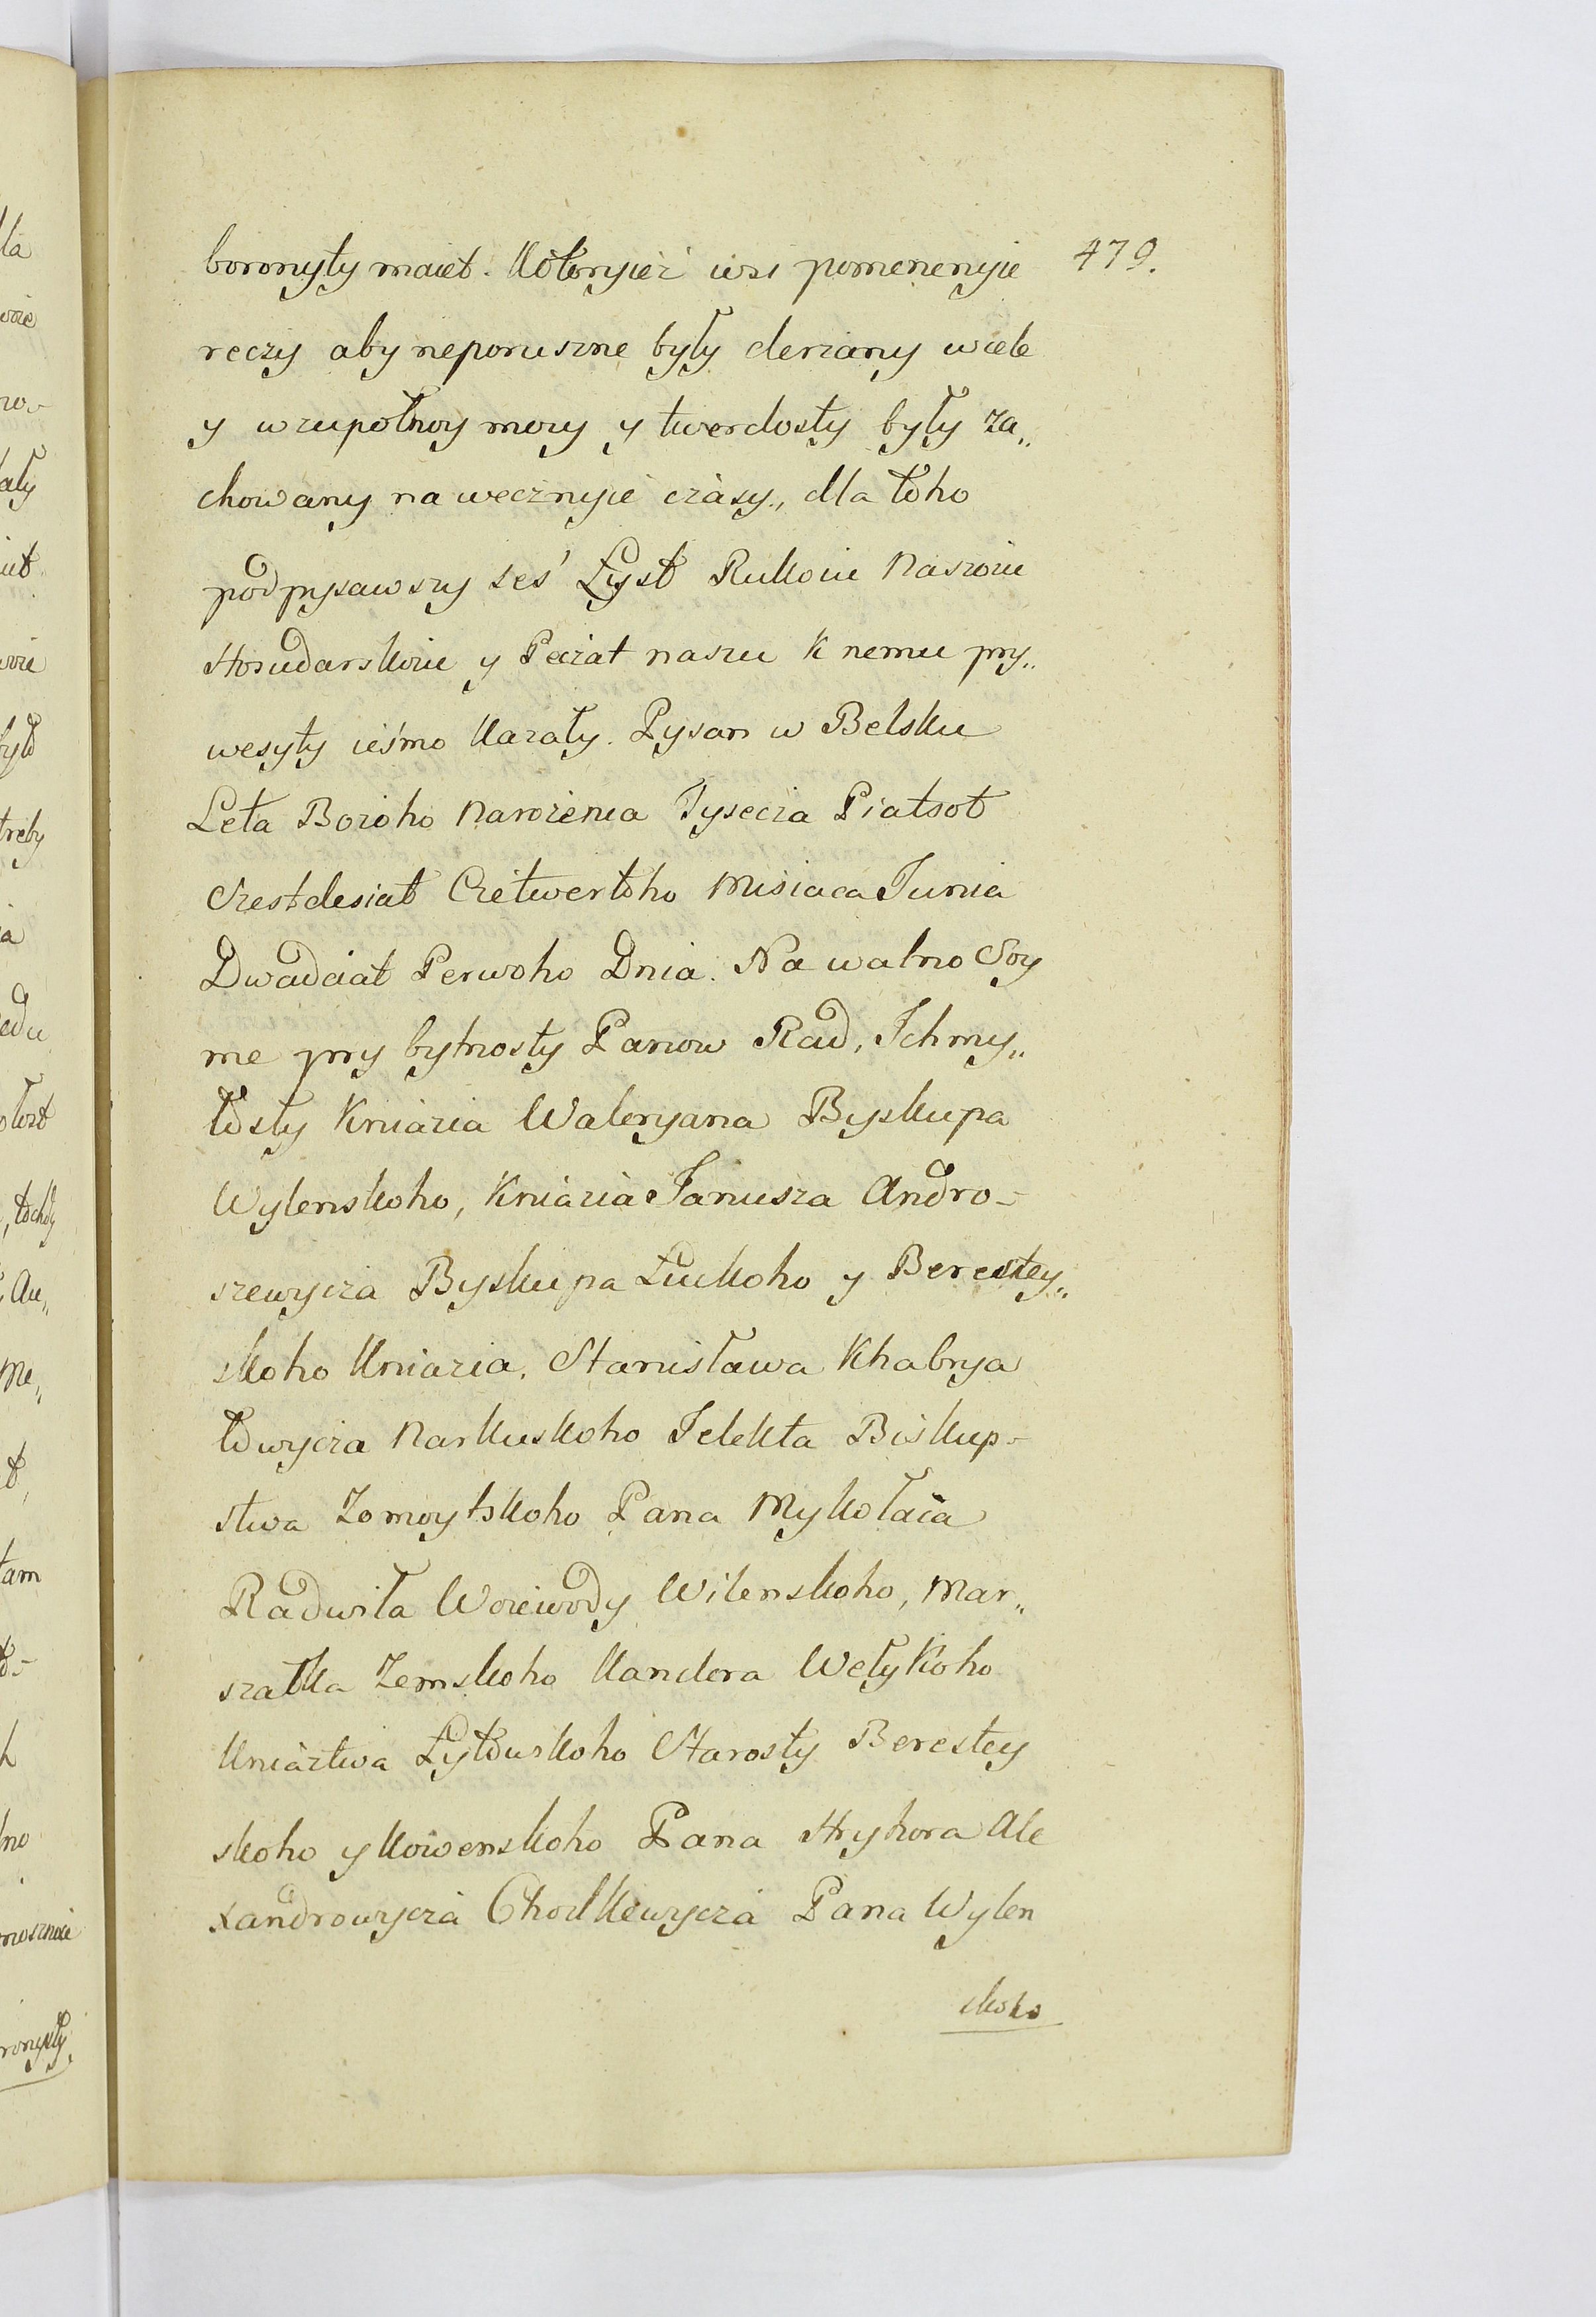 boronyły maiet. Kotoryież wsi pomenenyie 479.
reczy aby neporuszne były derzany wcele
y wzupołnoy mocy y twerdosty były za„
chowany na wecznyie czasy., dla toho
podpysawszy ses' Łyst Rukoiu Naszoiu
Hosudarskoiu y Peczat naszu k nemu pry„
wesyty ieśmo kazały. Pysan w Belsku
Leta Bożoho Narożenia Tysecza Piatsot
Szestdesiat Czetwertoho Misiaca Junia
Dwadciat Perwoho Dnia. Na walno Soy
me pry bytnosty Panow Rad, Ichmy„
łosty Kniazia Waleryana Byskupa
Wylenskoho, Kniazia Janusza Andro-
szewycza Byskupa Łuckoho y Berestey„
skoho Kniazia, Stanisława Khabrya
łowycza Narkuskoho Ielekta Biskup-
stwa Żomoytskoho Pana Mykołaia
Radwiła Woiewody Wilenskoho, Mar„
szałka Zemskoho Kanclera Wełykoho
Kniaztwa Łytowskoho Starosty Berestey
skoho y Kowenskoho Pana Hryhora Ale
xandrowycza Chodkewycza Pana Wylen
skoho
dla
ro-
ały
było
treby
a
edu
Au„
Me„
tam
h
lno
ronyły